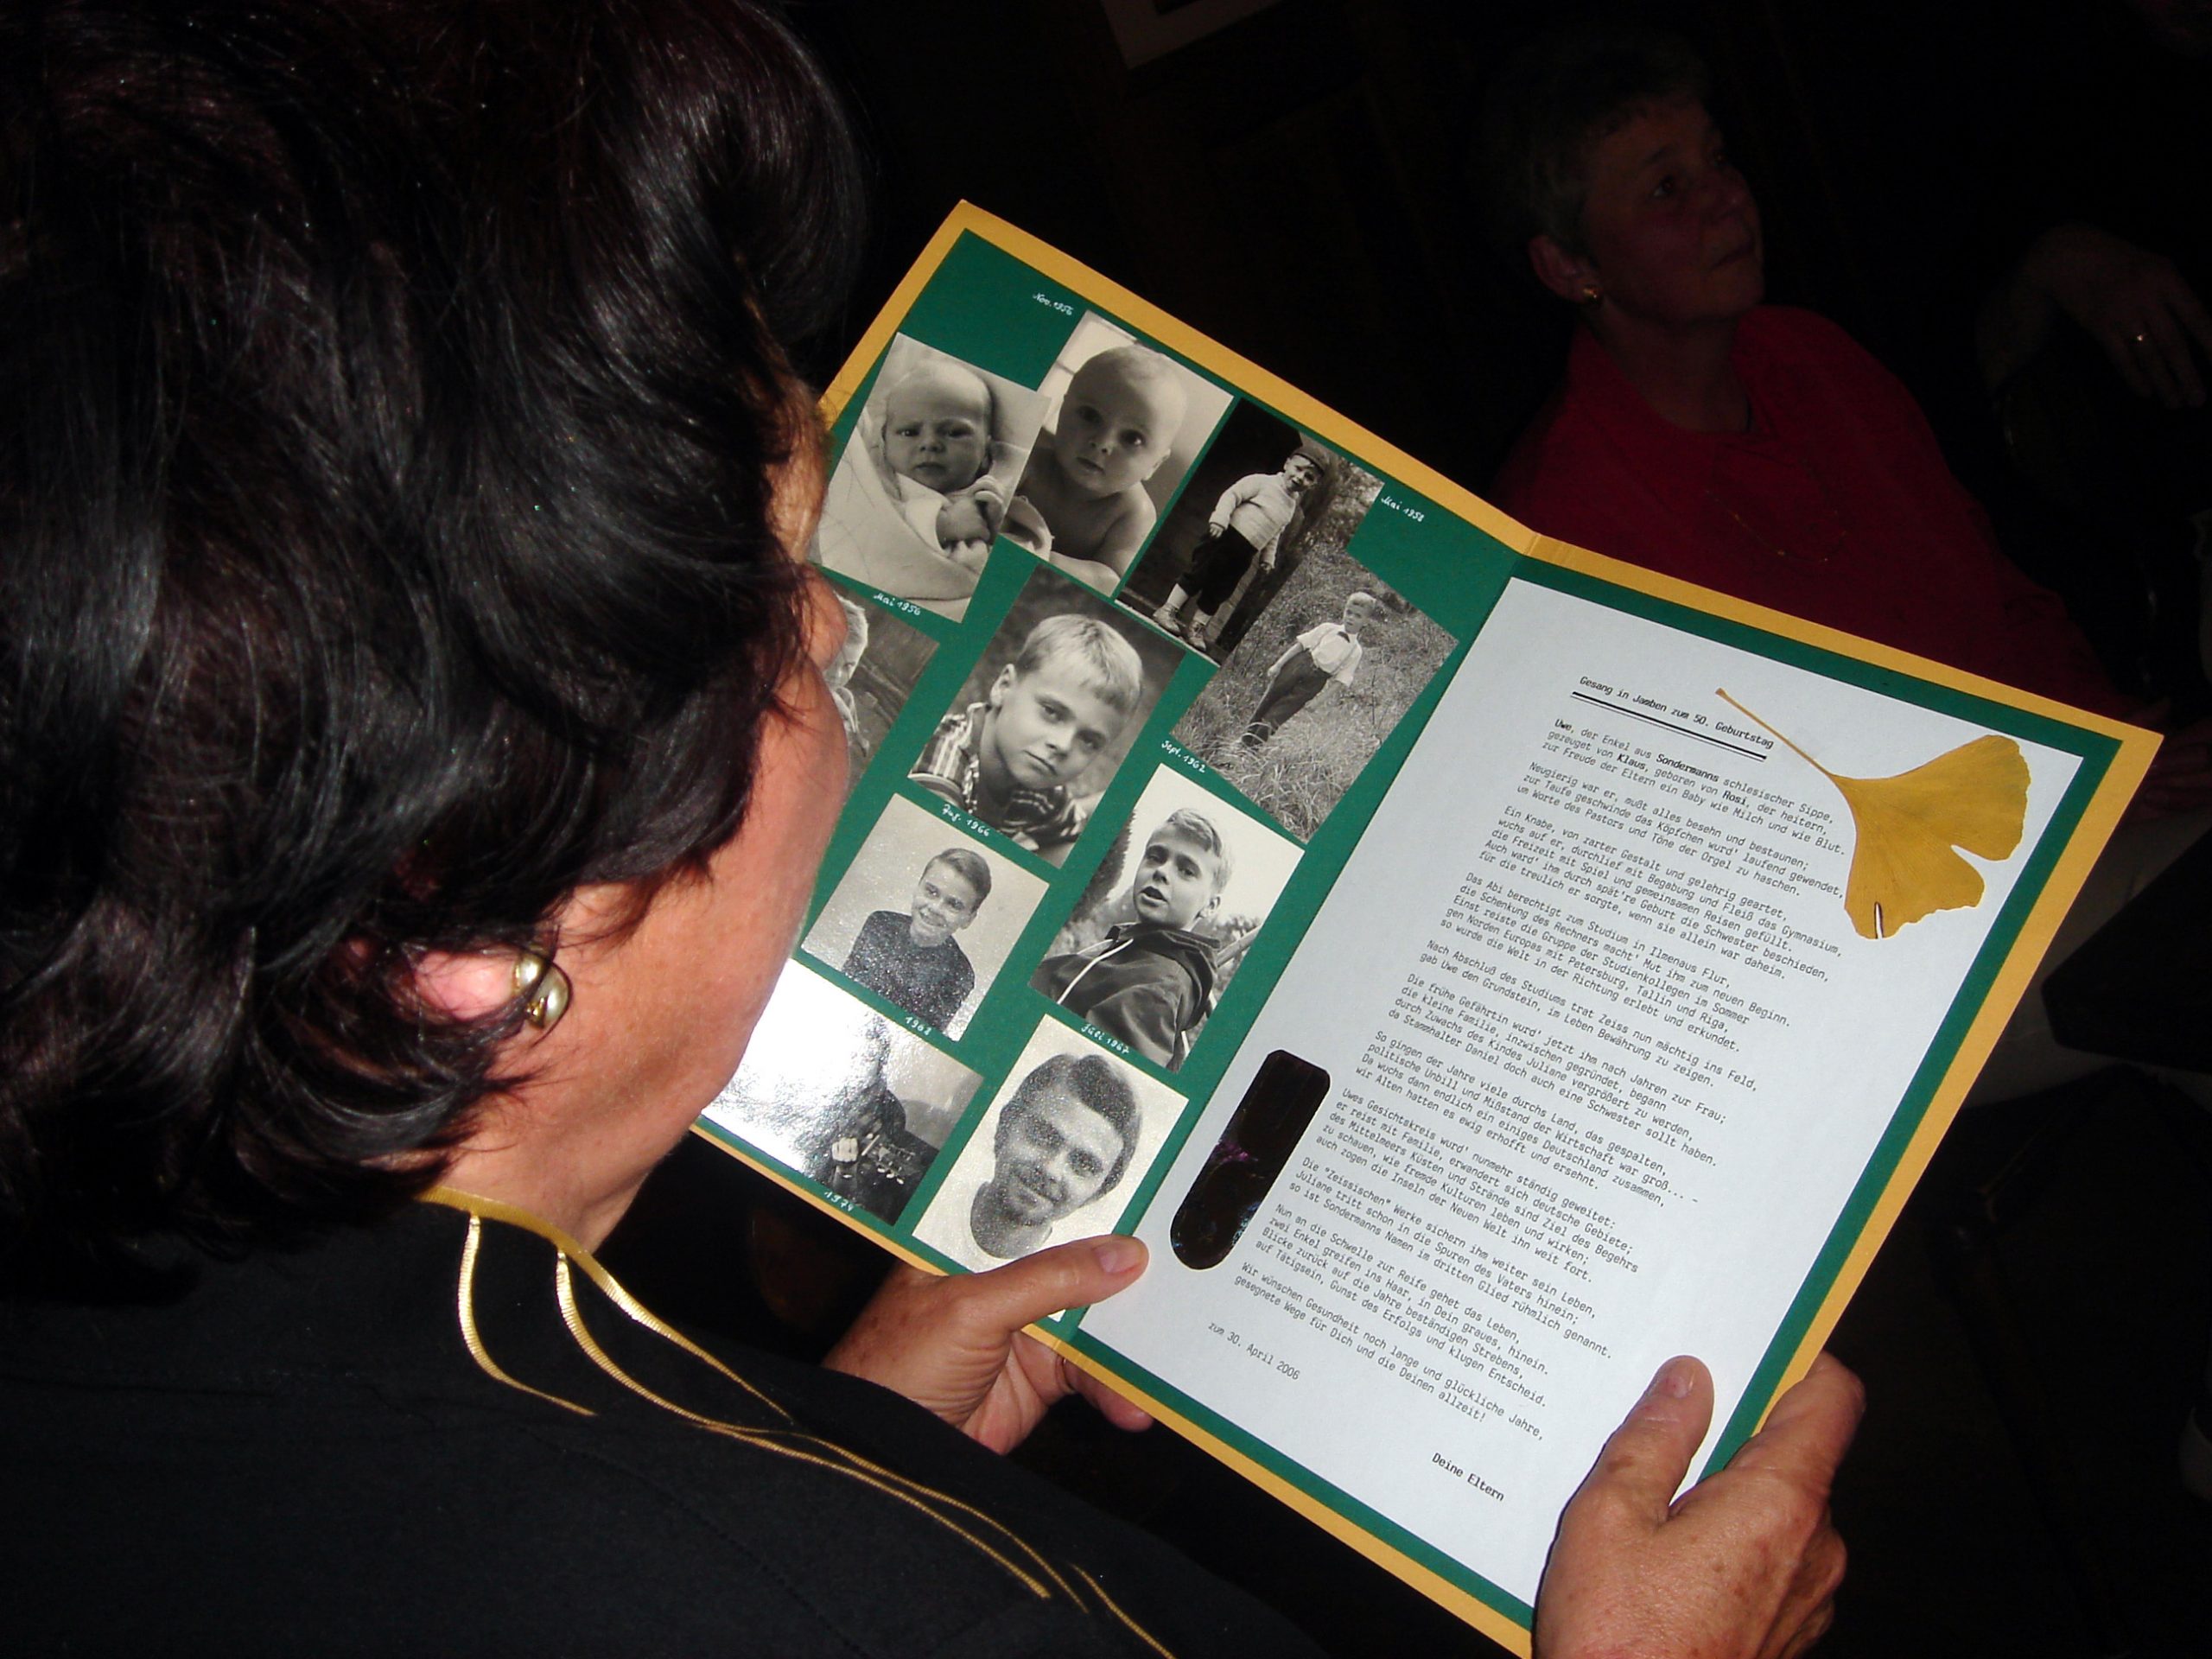 Nov. 1956
Mai 1958
Mai 1956
Sept. 1962
Aug. 1966
1968
Juli 1967
1974
Gesang in Jamben zum 50. Geburtstag
Uwe, der Enkel aus Sondermanns schlesischer Sippe,
gezeuget von Klaus, geboren von Rosi, der heitern,
zur Freude der Eltern ein Baby wie Milch und wie Blut.
Neugierig war er, mußt alles besehn und bestaunen;
zur Taufe geschwinde das Köpfchen wurd' laufend gewendet,
um Worte des Pastors und Töne der Orgel zu haschen.
Ein Knabe, von zarter Gestalt und gelehrig geartet,
wuchs auf er, durchlief mit Begabung und Fleiß das Gymnasium,
die Freizeit mit Spiel und gemeinsamen Reisen gefüllt.
Auch ward' ihm durch spät're Geburt die Schwester beschieden,
für die treulich er sorgte, wenn sie allein war daheim.
Das Abi berechtigt zum Studium in Ilmenaus Flur,
die Schenkung des Rechners macht' Mut ihm zum neuen Beginn.
Einst reiste die Gruppe der Studienkollegen im Sommer
gen Norden Europas mit Petersburg, Tallin und Riga,
so wurde die Welt in der Richtung erlebt und erkundet.
Nach Abschluß des Studiums trat Zeiss nun mächtig ins Feld,
gab Uwe den Grundstein, im Leben Bewährung zu zeigen.
Die frühe Gefährtin wurd' jetzt ihm nach Jahren zur Frau;
die kleine Familie, inzwischen gegründet, begann
durch Zuwachs des Kindes Juliane vergrößert zu werden,
da Stammhalter Daniel doch auch eine Schwester sollt haben.
So gingen der Jahre viele durchs Land, das gespalten,
politische Unbill und Mißstand der Wirtschaft war groß... -
Da wuchs dann endlich ein einiges Deutschland zusammen,
wir Alten hatten es ewig erhofft und ersehnt.
Uwes Gesichtskreis wurd' nunmehr ständig geweitet:
er reist mit Familie, erwandert sich deutsche Gebiete;
des Mittelmeers Küsten und Strände sind Ziel des Begehrs
zu schauen, wie fremde Kulturen leben und wirken;
auch zogen die Inseln der Neuen Welt ihn weit fort.
Die "Zeissischen" Werke sichern ihm weiter sein Leben,
Juliane tritt schon in die Spuren des Vaters hinein;
so ist Sondermanns Namen im dritten Glied rühmlich genannt.
Nun an die Schwelle zur Reife gehet das Leben,
zwei Enkel greifen ins Haar, in Dein graues, hinein.
Blicke zurück auf die Jahre beständigen Strebens,
auf Tätigsein, Gunst des Erfolgs und klugen Entscheid.
Wir wünschen Gesundheit noch lange und glückliche Jahre,
gesegnete Wege für Dich und die Deinen allzeit!
zum 30. April 2006
Deine Eltern